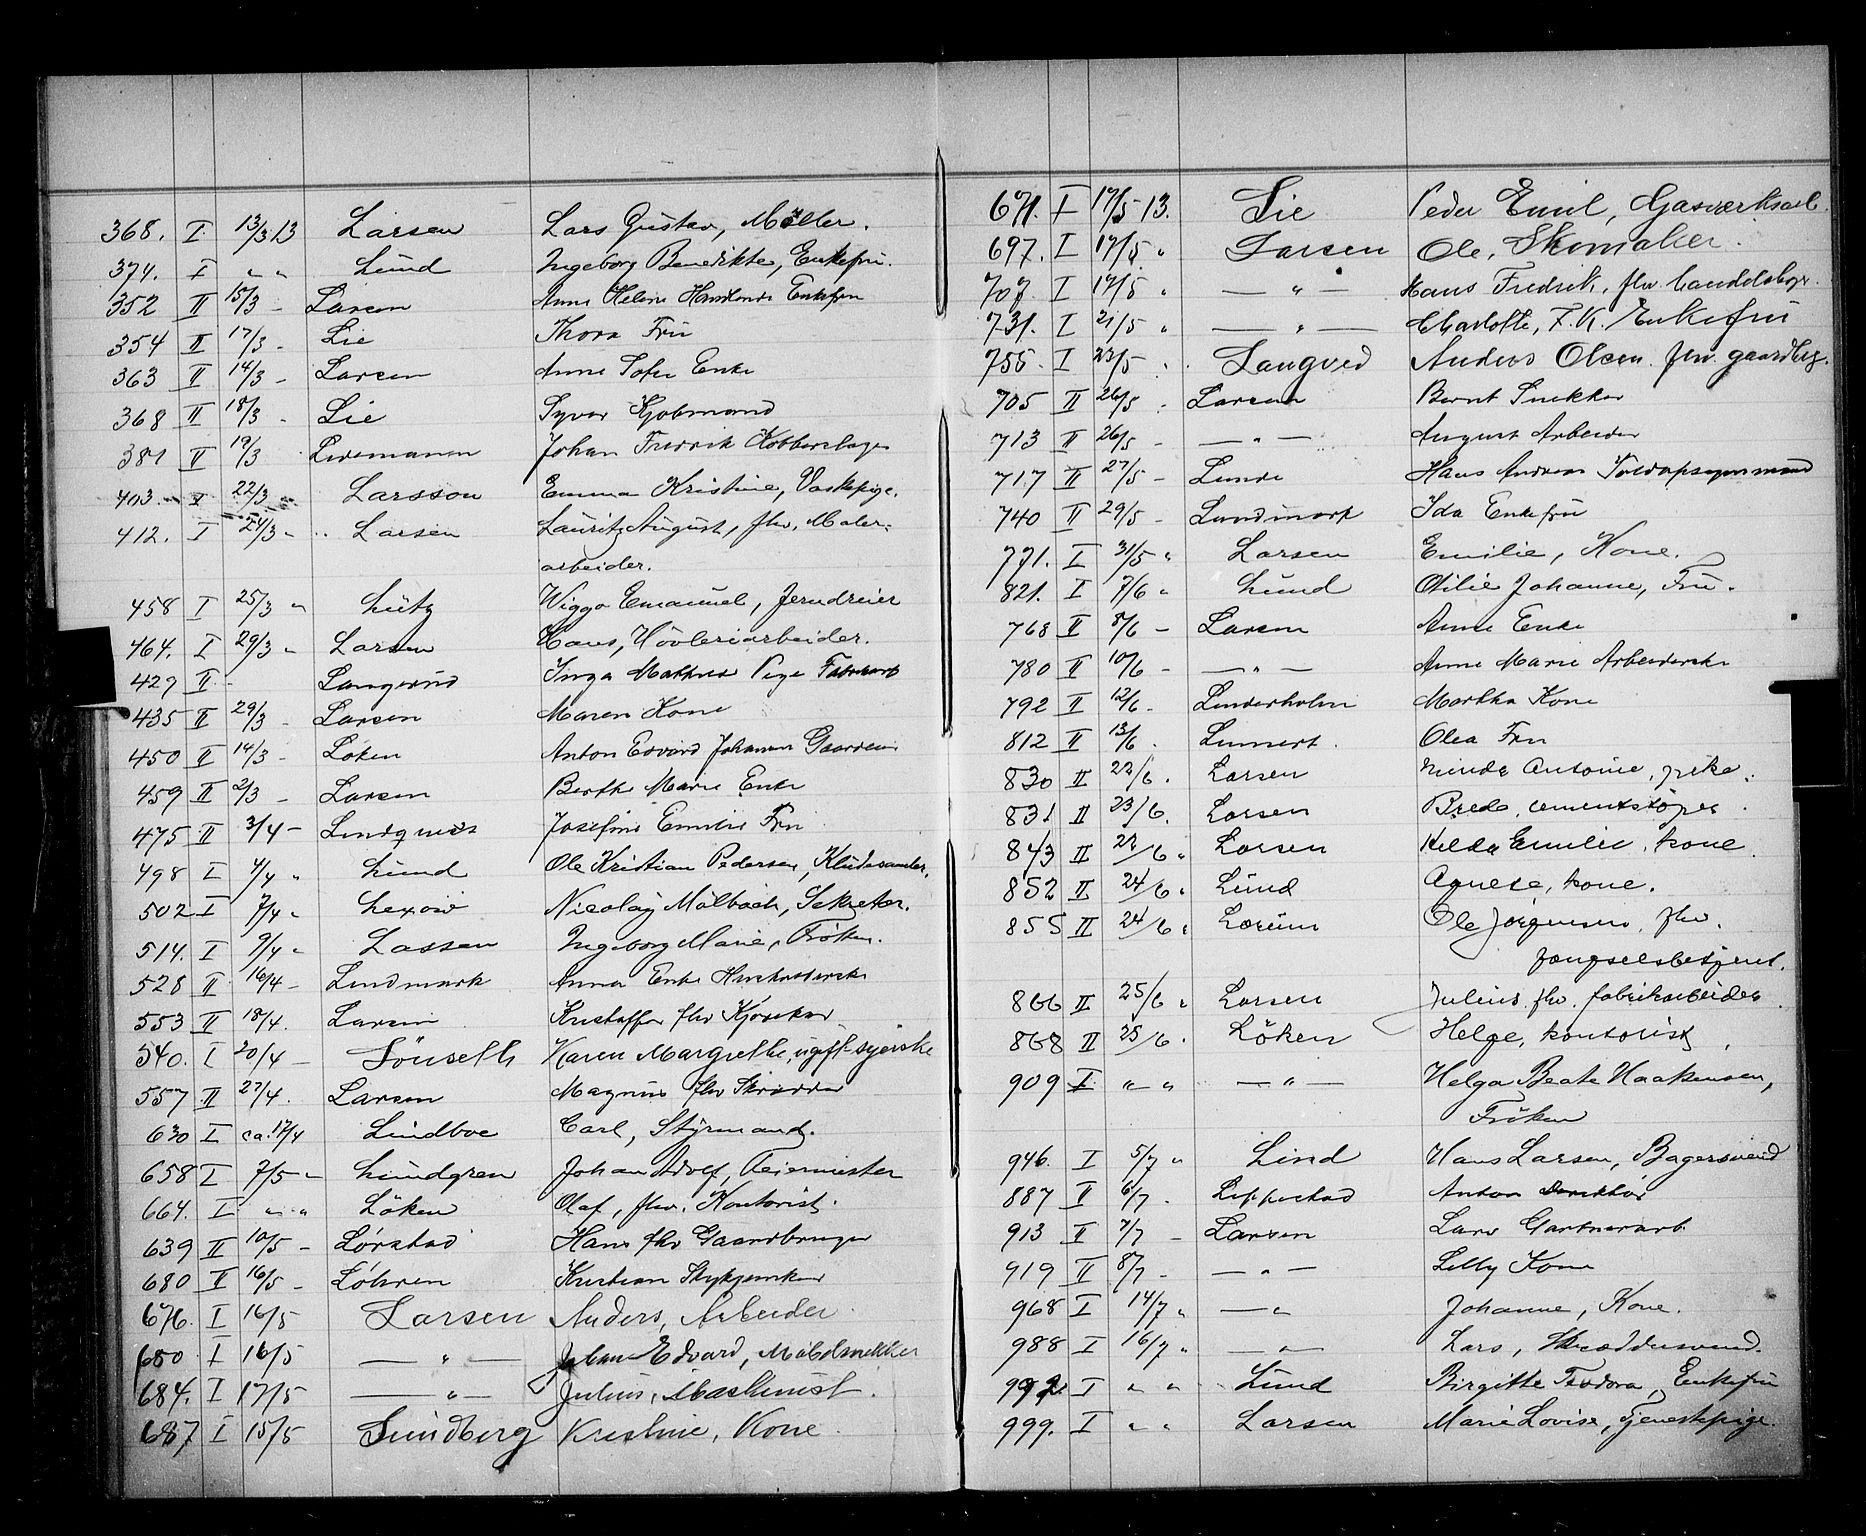 368. I 13/3 13 Larsen Lars Gustav, Møller.
374. I " " Lund Ingeborg Benedikte, Enkefru.
352 II 15/3 - Larsen Anne Helene Enkefru
354 II 17/3 - Lie Thora Fru
363 II 14/3 - Larsen Anne Sofie Enke
368 II 18/3 - Lie Syver Kjøbmand
381 II 19/3 Johan Fredrik Kobberslager
403. I 22/3 " Larsson Emma Kristine, Vaskepige.
412. I 24/3 " Larsen Lauritz August, fhv. Maler-
arbeider.
458 I 25/3 " Lütz Wiggo Emanuel, Jerndreier
464. I 29/3 " Larsen Hans, Hövleriarbeider.
429 II - Langerud Inga Mathea Pige
435 II 29/3 - Larsen Maren Kone
450 II 14/3 - Løken Anton Edvard Johansen
459 II 2/3 - Larsen Berthe Marie Enke
475 II 3/4 - Lindqvist Josefine Emilie Fru
498 I 4/4 " Lund Ole Kristian Pedersen, Kludesamler.
502 I 7/4 " Lexow Nicolay Mölbach, Sekretær.
514. I 9/4 " Lassen Ingeborg Marie, Frøken.
528 II 16/4 - Lindmark Anna Enke
553 II 18/4. Larsen Kristoffer fhv
540. I 20/4 - Lönseth Karen Margrethe, ugift syerske
557 II 27/4. Larsen Magnus fhv Skrædder
630 I ca. 17/4 Lindboe Carl, Styrmand.
658 I 7/5 " Lundgren Johan Adolf, Feiermester
664. I " " Löken Olaf, fhv. Kontorist.
639 II 10/5 - Lørstad Hans fhv Gaardbruger
680 II 16/5 - Løhren Kristian
676. I 16/5 Larsen Anders, Arbeider.
680 I 16/5 — " — Johan Edvard, Möbelsnekker
684. I 17/5 — " — Julius, Maskinist.
687 I 15/5 Lundberg Kristine, Kone.
671. I 17/5 13. Lie Peder Emil, Gasværksarb.
697. I 17/5 " Larsen Ole, Skomaker.
707. I 17/5 " — " — Hans Fredrik, fhv. handelsbgr.
731. I 21/5 " — " — Charlotte, F. K. Enkefru
755. I 23/5 " Langved Anders Olsen fhv. gaardbrg.
705 II 26/5 - Larsen Bernt Snekker
713 II 26/5 - — " — August Arbeider
717 II 27/5 - Lunde Hans Andreas Toldopsynsmand
740 II 29/5 - Lundmark Ida Enkefru
771. I 31/5 " Larsen Emilie, Kone.
821. I 7/6 " Lund Otilie Johanne, Fru.
768 II 8/6 - Larsen Anne Enke
780 II 10/6 - — " — Anne Marie Arbeiderske
792 II 12/6 - Linderholm Martha Kone
812 II 13/6. Linnert. Olea Fru
830 II 22/6. Larsen Antoine, pike.
831 II 23/6. Larsen Brede, cementstöper.
843 II 22/6 " Larsen Hilda Emilie, kone.
852 II 24/6 " Lund Agnete, kone.
855 II 24/6 " Lærum Ole Jörgensen, fhv.
fængselsbetjent.
866 II 25/6 " Larsen Julius fhv. fabrikarbeider.
868 II 25/6. Löken Helge, kontorist,
909 I " " — " — Helga Beate Haakensen,
Fröken
946. I 5/7 " Lind Hans Larsen, Bagersvend
887 II 6/7. Lippestad Anton Direktör
913 II 7/7 - Larsen Lars Gartnerarb
919 II 8/7 - — " — Lilly Kone
968 I 14/7 " — " Johanne, Kone.
988 I 16/7 " — " — Lars, Skræddersvend.
992 I " " Lund Birgitte Teodora, Enkefru
999. I " " Larsen Marie Lovise, Tjenestepige.